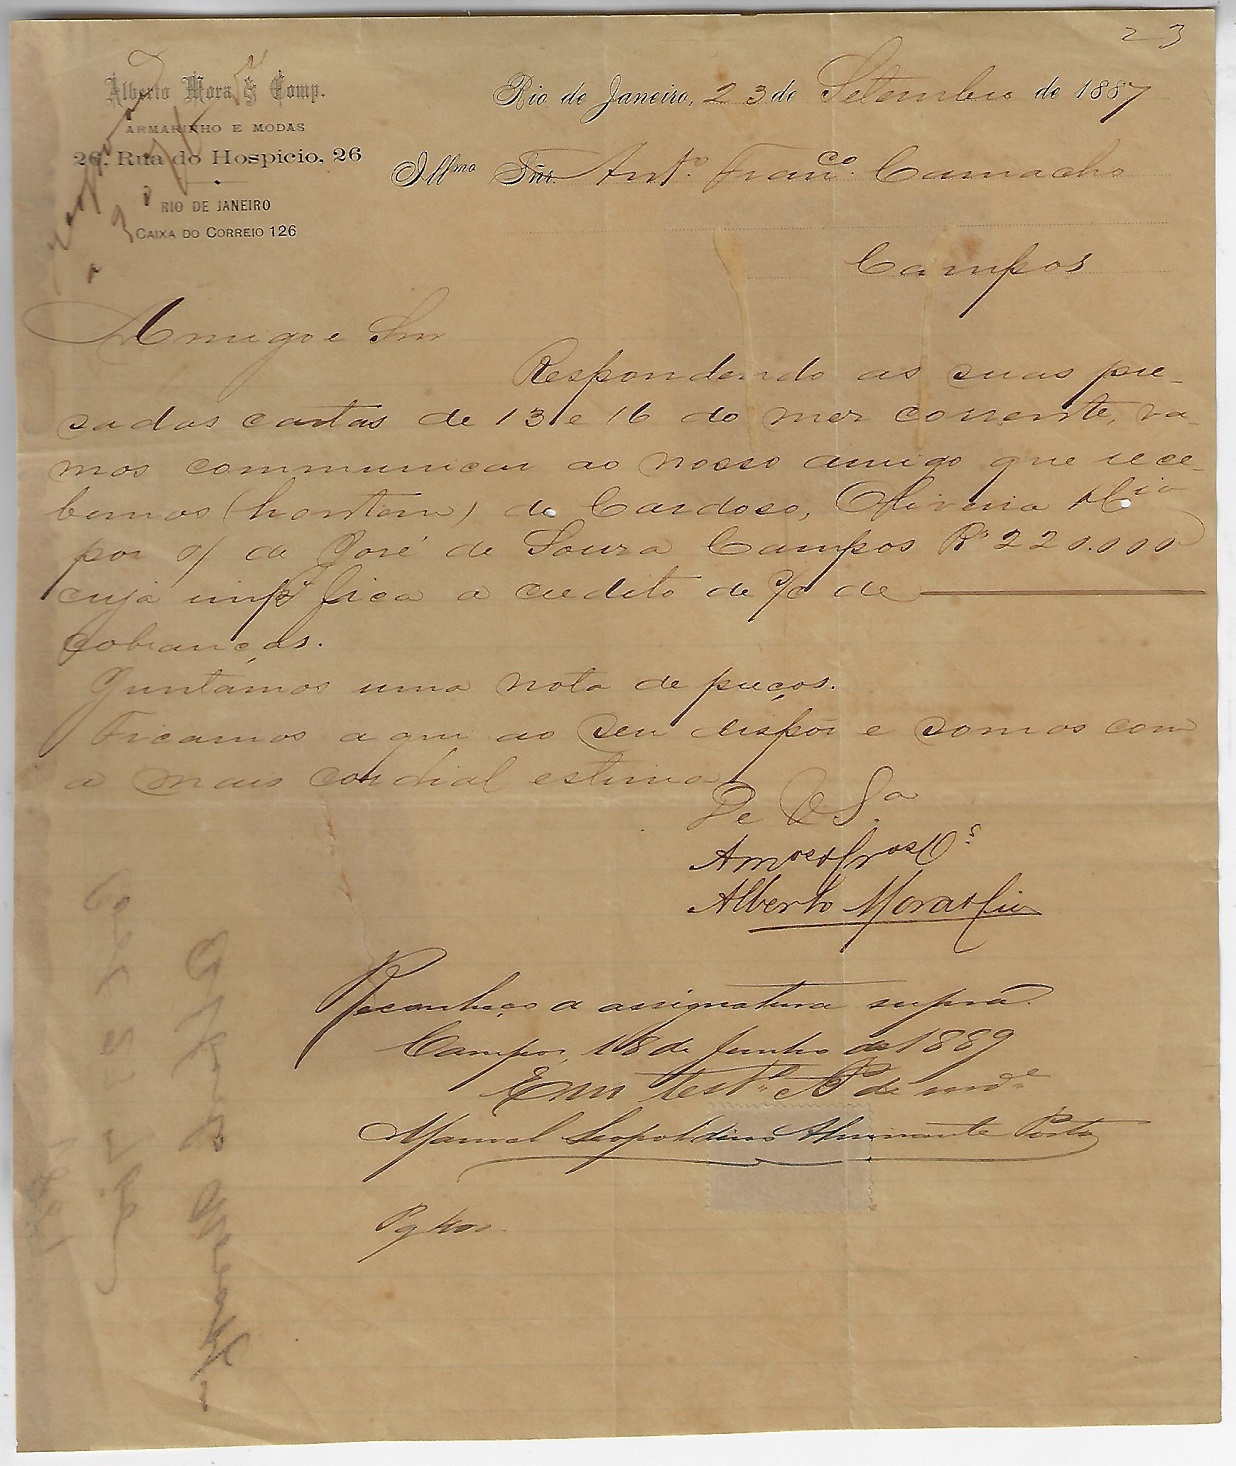 23
Alberto Mora & Comp.
ARMARINHO E MODAS
26, Rua do Hospicio, 26
RIO DE JANEIRO
CAIXA DO CORREIO 126
Rio de Janeiro, 23 de Setembro de 1887
Illmo Snr. Anto. Franco. Camacho
Campos
Amigo e Snr
Respondendo as suas pre-
sadas cartas de 13 e 16 do mez corrente, va-
mos communicar ao nosso amigo que rece-
bemos (hontem) de Cardoso, Oliveira & Cia
por o/ de José de Souza Campos Rs 220.000
cuja impe fica a credito de c/c de
cobranças.
Juntamos uma nota de preços.
Ficamos aqui ao seu dispor e somos com
a mais cordial estima
De V Sa
Amos & Cros Os
Alberto Mora & Cia
Reconheço a assignatura supra.
Campos, 18 de Junho de 1889
Em testo de verde
Manoel Leopoldino Almirante Porto